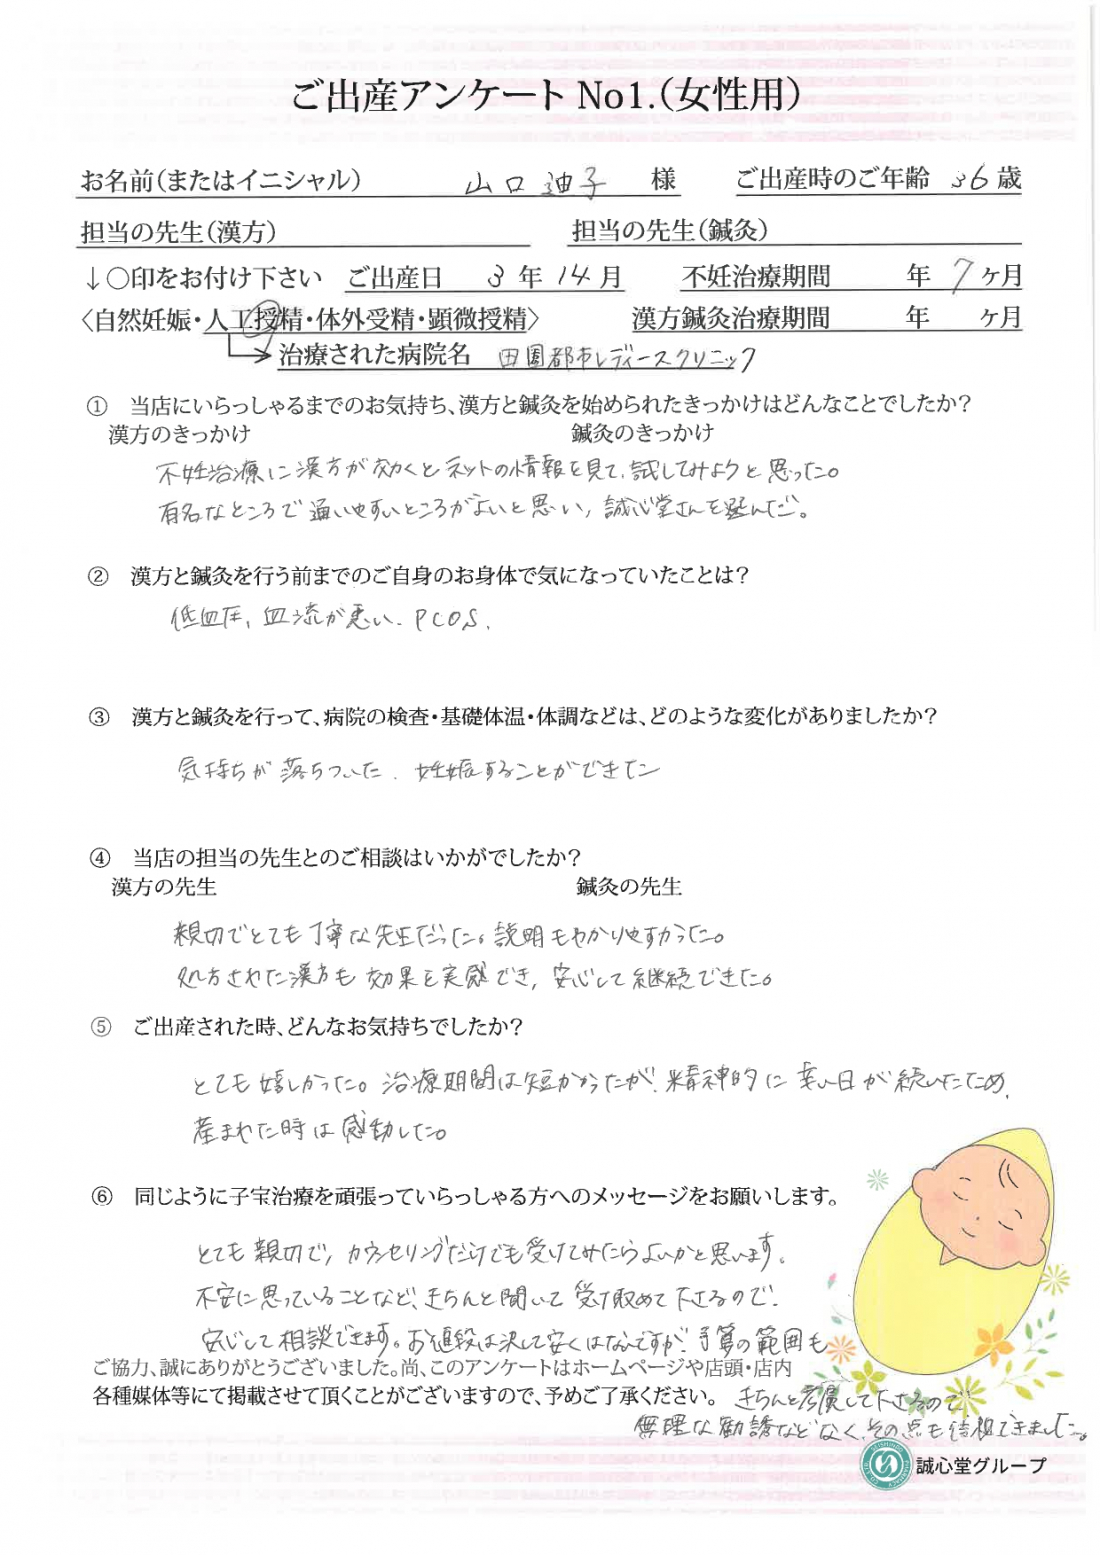 ご出産アンケート No1.（女性用）
お名前（またはイニシャル） 山口 迪子 様 ご出産時のご年齢 36 歳
担当の先生（漢方） 担当の先生（鍼灸）
↓○印をお付け下さい ご出産日 3 年 14 月 不妊治療期間 年 7 ヶ月
〈自然妊娠・人工授精・体外受精・顕微授精〉 漢方鍼灸治療期間 年 ヶ月
治療された病院名 田園都市レディースクリニック
① 当店にいらっしゃるまでのお気持ち、漢方と鍼灸を始められたきっかけはどんなことでしたか？
漢方のきっかけ 鍼灸のきっかけ
不妊治療に漢方が効くとネットの情報を見て、試してみようと思った。
有名なところで通いやすいところがよいと思い、誠心堂さんを選んだ。
② 漢方と鍼灸を行う前までのご自身のお身体で気になっていたことは？
低血圧、血流が悪い、PCOS、
③ 漢方と鍼灸を行って、病院の検査・基礎体温・体調などは、どのような変化がありましたか？
気持ちが落ちついた、妊娠することができた
④ 当店の担当の先生とのご相談はいかがでしたか？
漢方の先生 鍼灸の先生
親切でとても丁寧な先生だった。説明もわかりやすかった。
処方された漢方も効果を実感でき、安心して継続できた。
⑤ ご出産された時、どんなお気持ちでしたか？
とても嬉しかった。治療期間は短かかったが、精神的に辛い日が続いたため、
産まれた時は感動した。
⑥ 同じように子宝治療を頑張っていらっしゃる方へのメッセージをお願いします。
とても親切で、カウンセリングだけでも受けてみたらよいかと思います。
不安に思っていることなど、きちんと聞いて受け取めて下さるので、
安心して相談できます。お値段は決して安くはないですが、予算の範囲も
ご協力、誠にありがとうございました。尚、このアンケートはホームページや店頭・店内
各種媒体等にて掲載させて頂くことがございますので、予めご了承ください。
きちんと考慮して下さるので
無理な勧誘などなく、その点も信頼できました。
誠心堂グループ